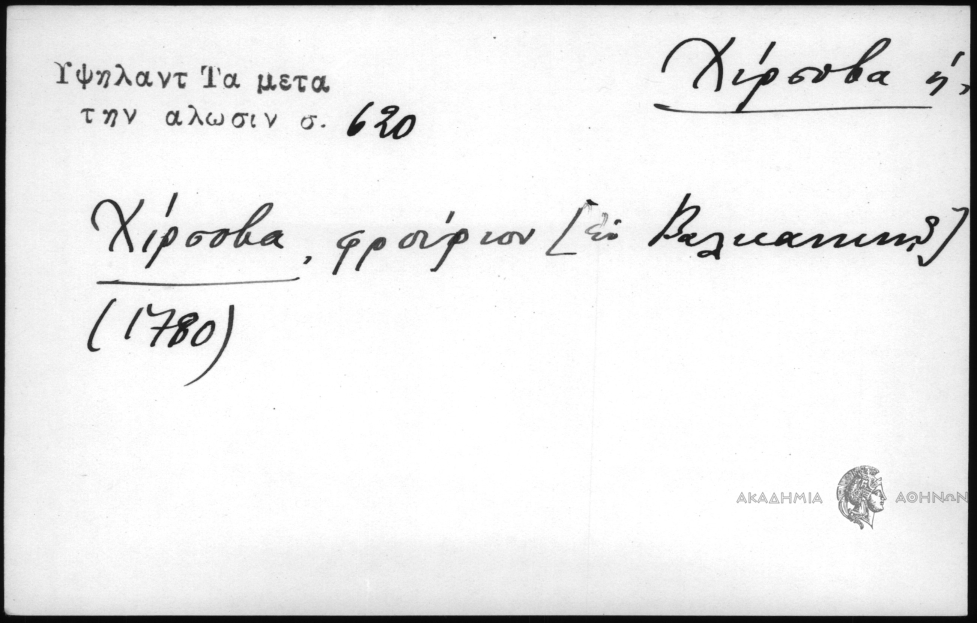 Υψηλαντ Τα μετα
την αλωσιν σ. 620
Χίρσοβα ἡ,
Χίρσοβα, φρούριον [ἐν Βαλκανικῇ]
(1780)
ΑΚΑΔΗΜΙΑ ΑΘΗΝΩΝ